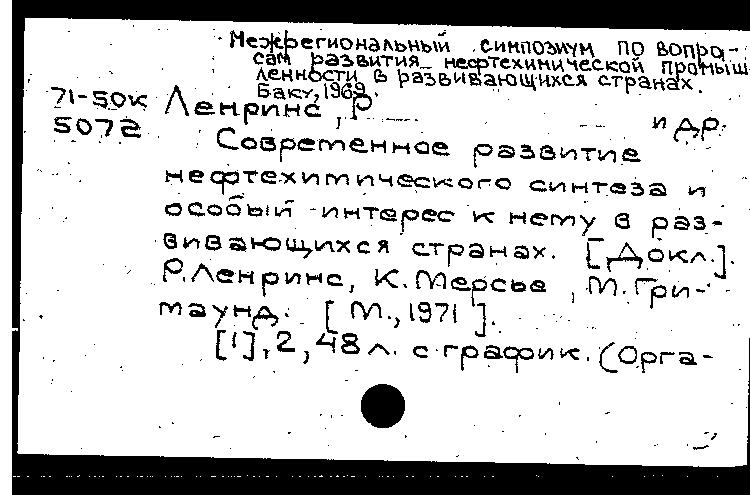 Межрегиональный симпозиум по вопро-
сам развития нефтехимической промыш
ленности в развивающихся странах.
Баку, 1969.
71-50к Ленринс, Р. и др.
5072
Современное развитие
нефтехимического синтеза и
особый интерес к нему в раз-
вивающихся странах. [Докл.].
Р. Ленринс, К. Мерсье, М. Гри-
маунд. [М., 1971].
[1], 2, 48 л. с график. (Орга-